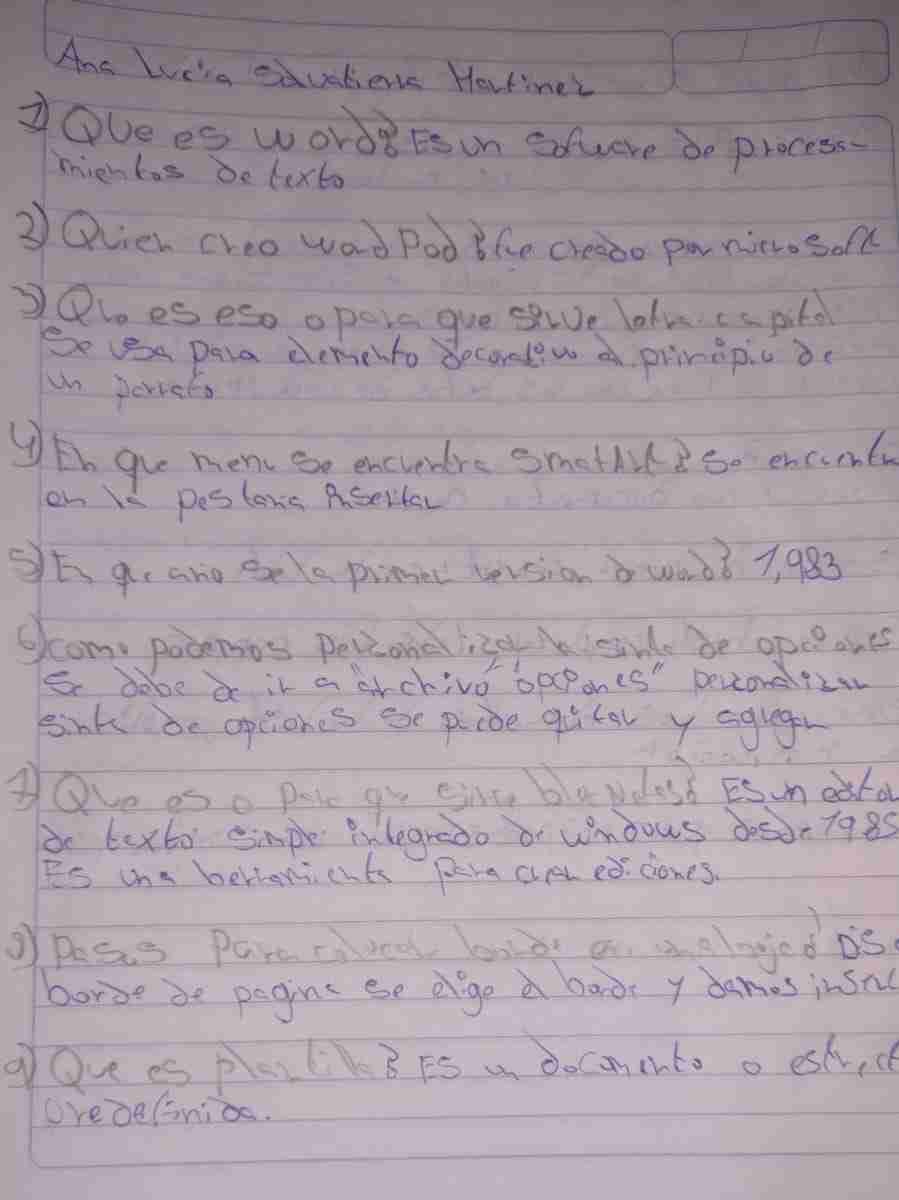 Ana Lucía Salvatierra Martinez
1) Que es word? Es un software de procesa-
mientos de texto
2) Quien creo word Pad? fue creado por microsoft
3) Que es eso o para que sirve letra capital
Se usa para elemento decorativo al principio de
un parrafo
4) En que menu se encuentra SmartArt? Se encuentra
en la pestana Insertar
5) En que ano se la primer version de word? 1,983
6) como podemos personalizar la sinta de opciones
Se debe de ir a "archivo" "opciones" personalizar
sinta de opciones se puede quitar y agregar
7) Que es o para que sirve bloc Es un
de texto simple integrado de windows desde 1985
Es una herramienta para crear ediciones.
8) Pasos Para colocar borde en una Dis
borde de pagina se elige el borde y damos
9) Que es plantilla? Es un documento o estruct
predefinida.